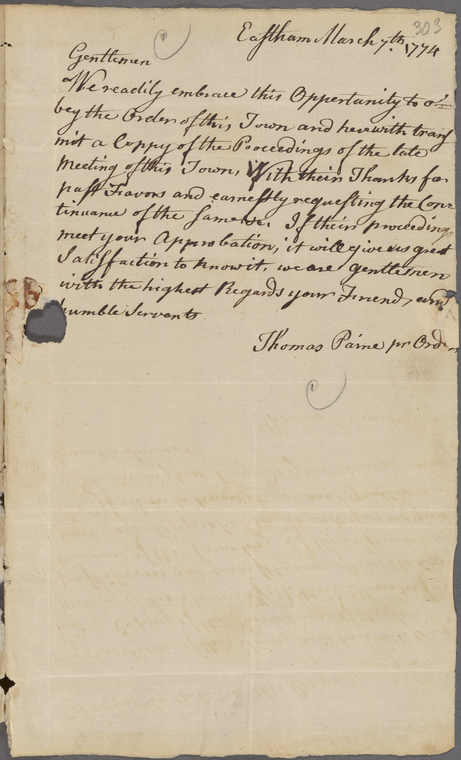 303
Eastham March 7th. 1774
Gentlemen
We readily embrace this Oppertunity to o-
bey the Order of this Town and herewith trans
mit a Coppy of the Proceedings of the late
Meeting of this Town, With their Thanks for
past Favors and earnestly requesting the Con-
tinuance of the Same. If their proceedings
meet your Approbation, it will give us great
Satisffaction to know it. we are gentlemen
with the highest Regards your Friend, and
humble Servants
Thomas Paine pr Order